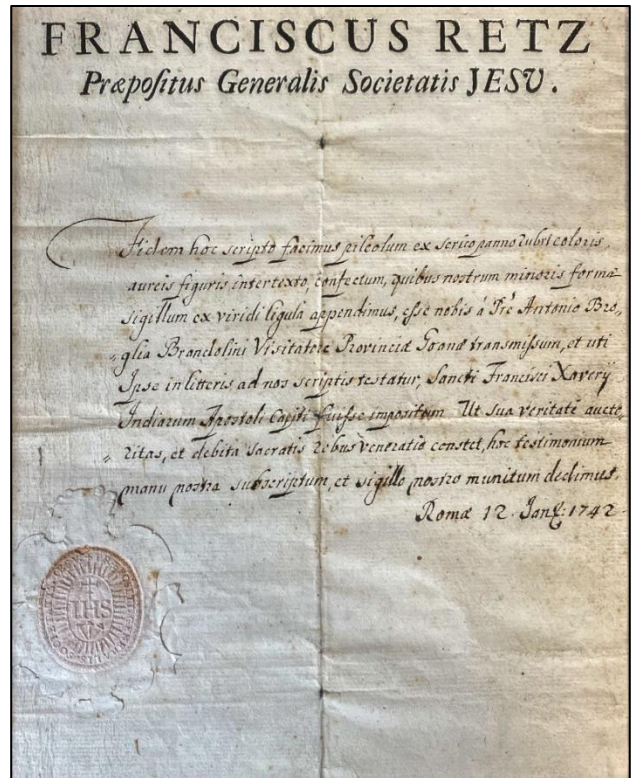 FRANCISCUS RETZ
Præpositus Generalis Societatis JESV.
Fidem hoc scripto facimus pileolum ex serico panno rubri coloris,
aureis figuris intertexto, confectum, quibus nostrum minoris formæ
sigillum ex viridi ligula appendimus, esse nobis á Pre Antonio Bro,
„glia Brandolini Visitatore Provinciæ Goanæ transmissum, et uti
Ipse in litteris ad nos scriptis testatur, Sancti Francisci Xaverij
Indiarum Apostoli Capiti fuisse impositum. Ut sua veritati aucto,
„ritas, et debita sacratis rebus veneratio constet, hoc testimonium
manu nostra subscriptum, et sigillo nostro munitum dedimus.
Romæ 12. Jan: 1742
IHS